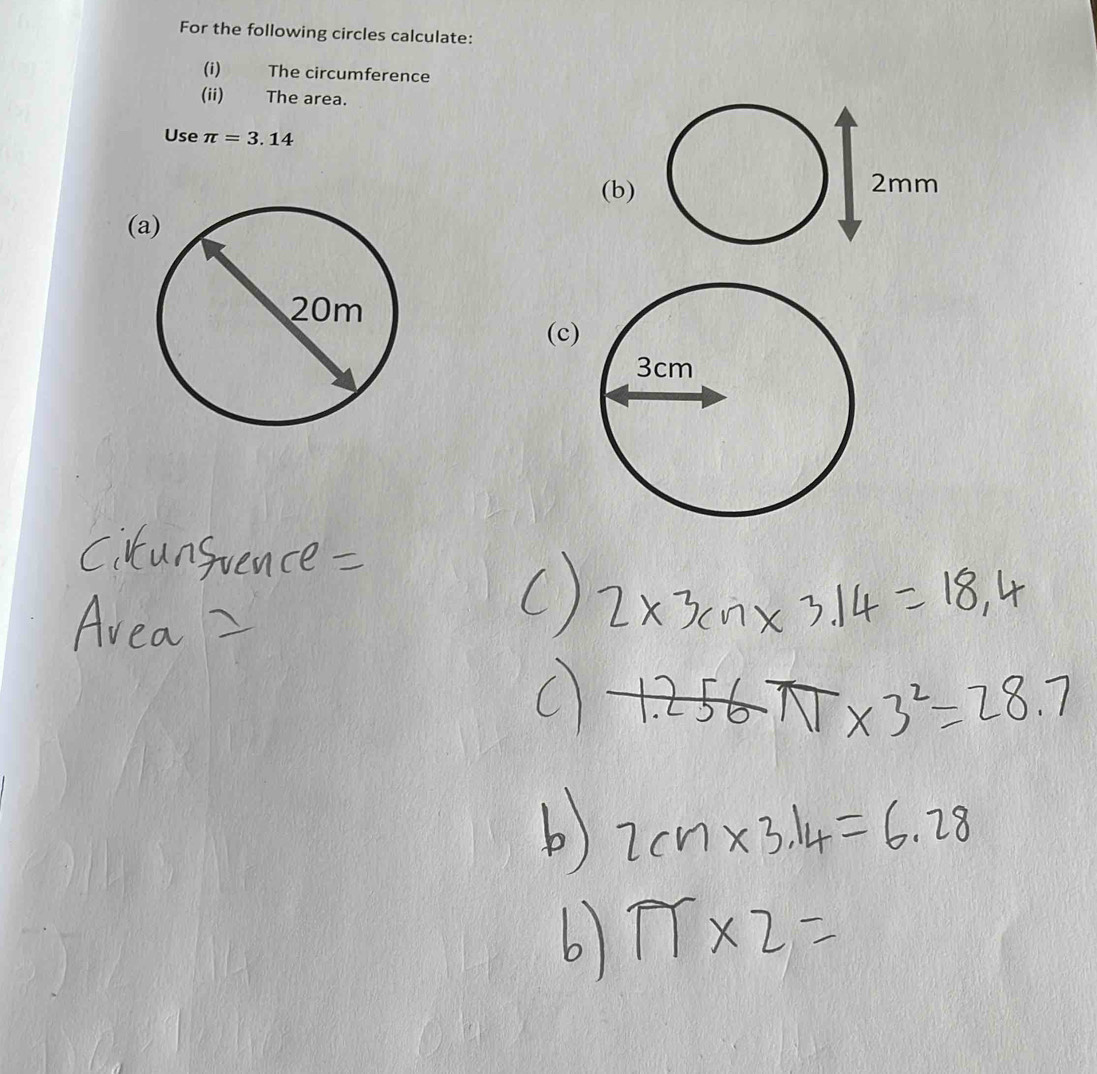 For the following circles calculate:
(i) The circumference
(ii) The area.
Use π = 3.14
(a)
20m
(b)
2mm
(c)
3cm
Area =
c) 2 x 3cm x 3.14 = 18,4
c) 1.256 π x 3² = 28.7
b) 2cm x 3.14 = 6.28
b) π x 2 =